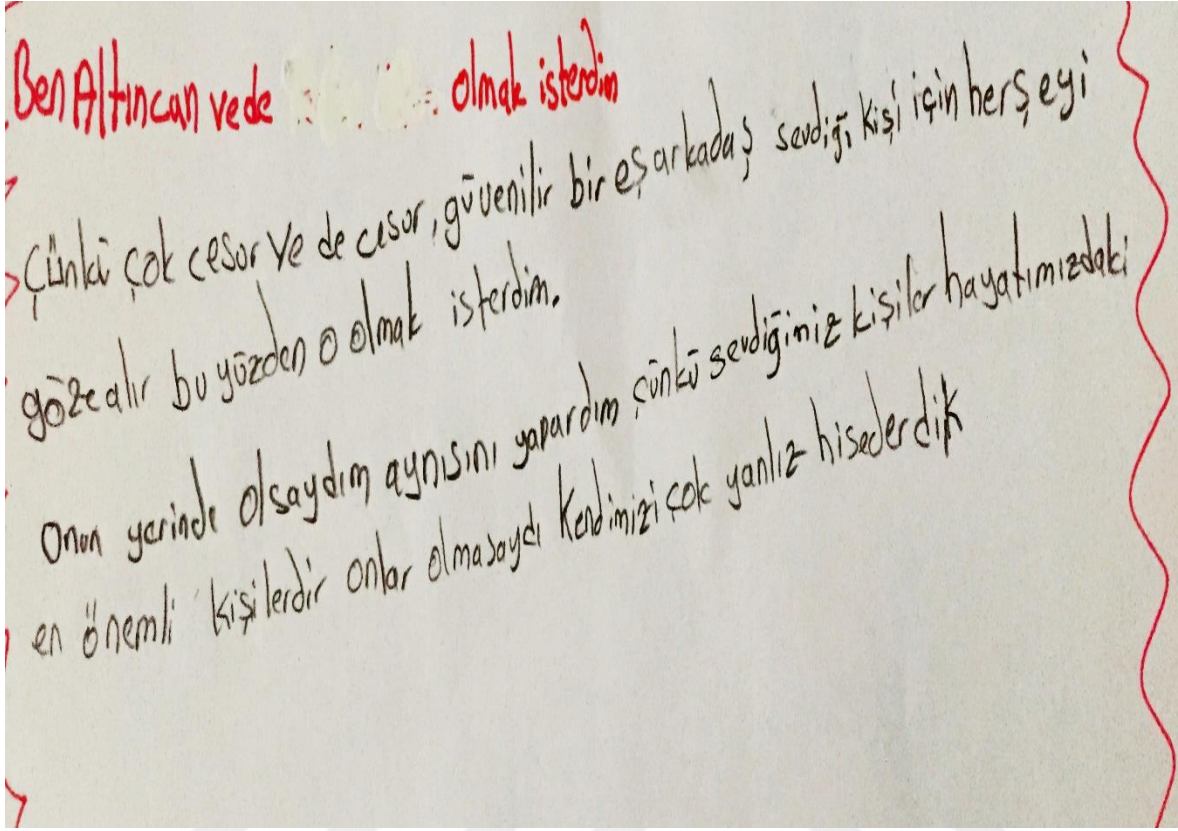 Ben Altıncan vede olmak isterdim
Çünkü çok cesur Ve de cesur, güvenilir bir eş arkadaş sevdiği kişi için herşeyi
göze alır bu yüzden o olmak isterdim.
Onun yerinde olsaydım aynısını yapardım çünkü sevdiğimiz kişiler hayatımızdaki
en önemli kişilerdir onlar olmasaydı Kendimizi çok yanlız hisederdik